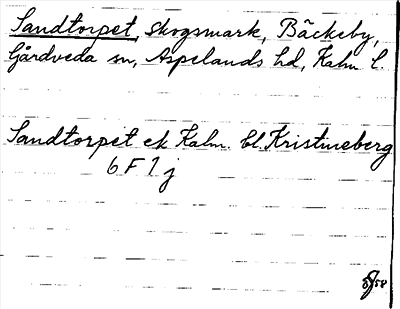 Sandtorpet, skogsmark, Bäckeby,
Gårdveda sn, Aspelands hd, Kalm l.
Sandtorpet ek Kalm. bl. Kristineberg
6 F 1 j
58